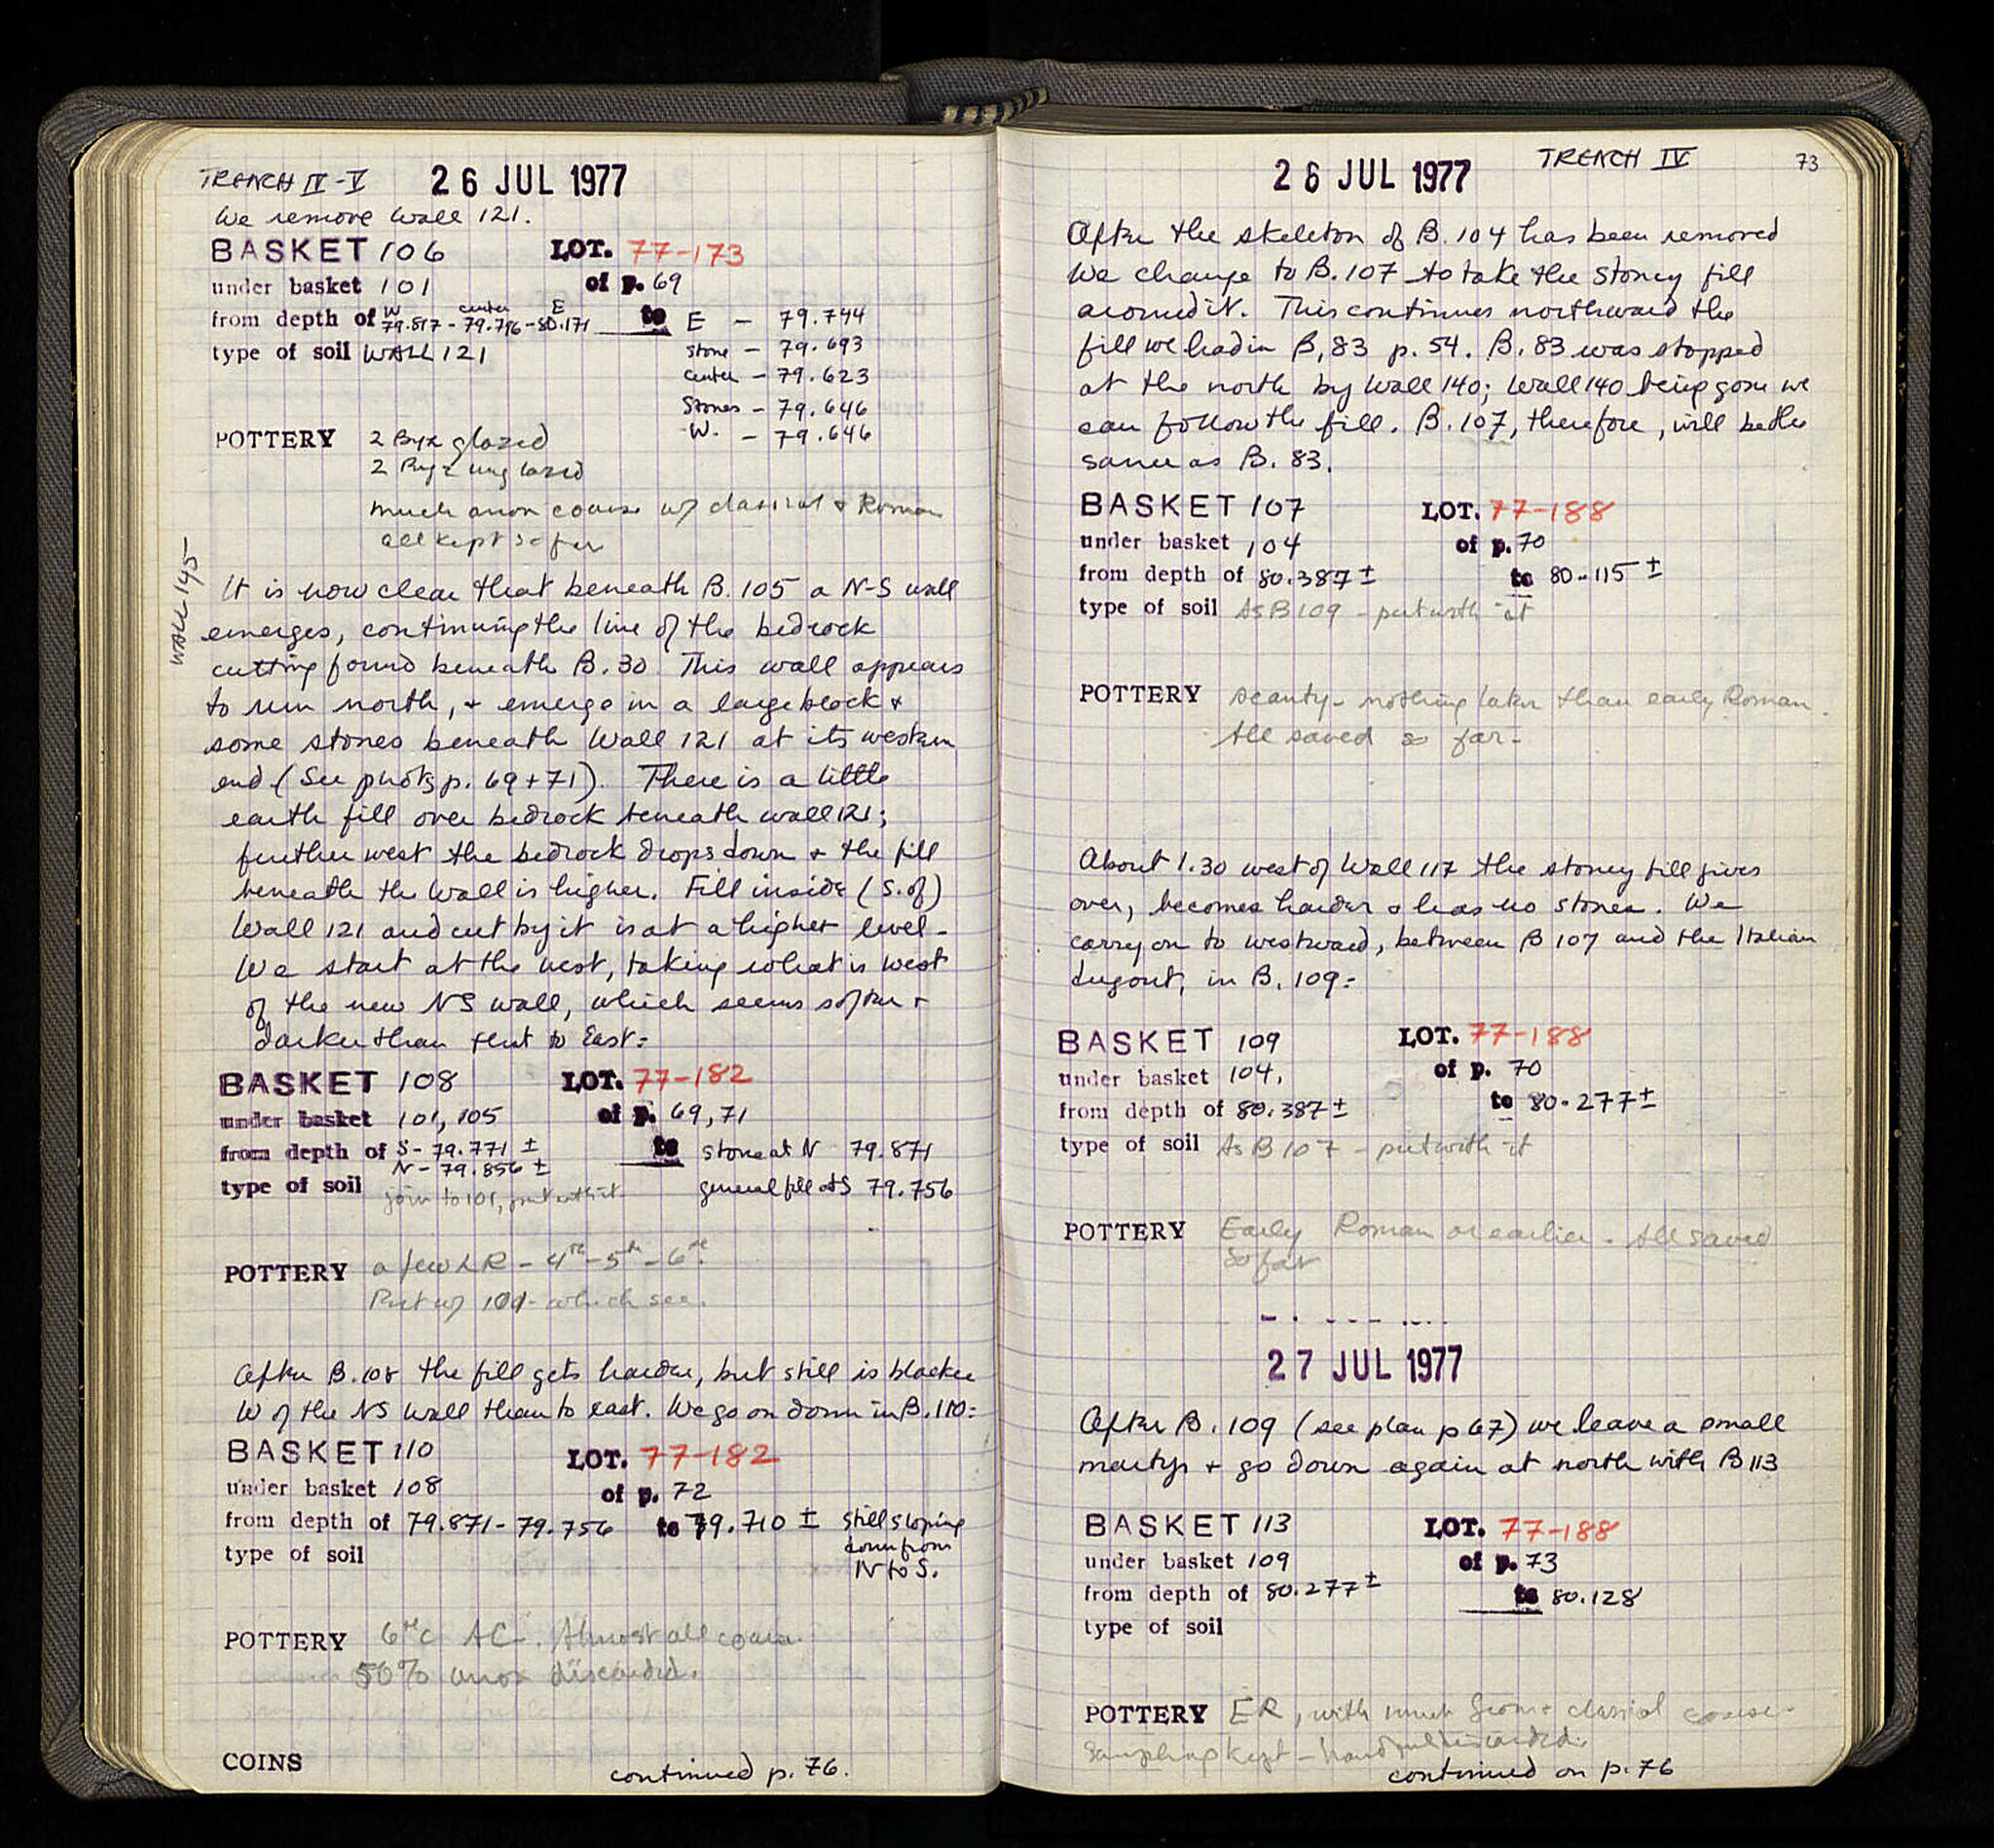 TRENCH IV - V 26 JUL 1977
We remove Wall 121.
BASKET 106 LOT. 77-173
under basket 101 of p. 69
from depth of W 79.817 - center 79.796 - E 80.171 to E - 79.744
type of soil WALL 121 stone - 79.693
center - 79.623
Stones - 79.646
W. - 79.646
POTTERY 2 Byz glazed
2 Byz unglazed
much anon coarse w/ classical + Roman
all kept so far
WALL 145
It is now clear that beneath B. 105 a N-S wall
emerges, continuing the line of the bedrock
cutting found beneath B. 30. This wall appears
to run north, + emerge in a large block +
some stones beneath Wall 121 at its western
end (See photos p. 69 + 71). There is a little
earth fill over bedrock beneath wall 121;
further west the bedrock drops down + the fill
beneath the wall is higher. Fill inside (S. of)
Wall 121 and cut by it is at a higher level.
We start at the west, taking what is west
of the new NS wall, which seems softer +
darker than that to East:
BASKET 108 LOT. 77-182
under basket 101, 105 of p. 69, 71
from depth of S - 79.771 ± to stone at N 79.871
N - 79.856 ±
type of soil join to 101, put with it. general fill at S 79.756
POTTERY a few LR - 4th - 5th - 6th.
Put w/ 101 - which see.
After B. 108 the fill gets harder, but still is blacker
W of the NS wall than to east. We go on down in B. 110:
BASKET 110 LOT. 77-182
under basket 108 of p. 72
from depth of 79.871 - 79.756 to 79.710 ± still sloping
type of soil down from
N to S.
POTTERY 6th c AC. Almost all coarse.
50% anon discarded.
COINS
continued p. 76.
26 JUL 1977 TRENCH IV 73
After the skeleton of B. 104 has been removed
we change to B. 107 to take the stoney fill
around it. This continues northward the
fill we had in B. 83 p. 54. B. 83 was stopped
at the north by Wall 140; Wall 140 being gone we
can follow the fill. B. 107, therefore, will be the
same as B. 83.
BASKET 107 LOT. 77-188
under basket 104 of p. 70
from depth of 80.387 ± to 80.115 ±
type of soil As B 109 - put with it
POTTERY scanty - nothing later than early Roman.
All saved so far.
About 1.30 west of Wall 117 the stoney fill gives
over, becomes harder & has no stones. We
carry on to westward, between B 107 and the Italian
dugout, in B. 109:
BASKET 109 LOT. 77-188
under basket 104, of p. 70
from depth of 80.387 ± to 80.277 ±
type of soil As B 107 - put with it
POTTERY Early Roman or earlier. All saved
so far
27 JUL 1977
After B. 109 (see plan p 67) we leave a small
martyr + go down again at north with B 113
BASKET 113 LOT. 77-188
under basket 109 of p. 73
from depth of 80.277 ± to 80.128
type of soil
POTTERY ER, with much classical coarse.
Sampling kept - handful discarded.
continued on p. 76